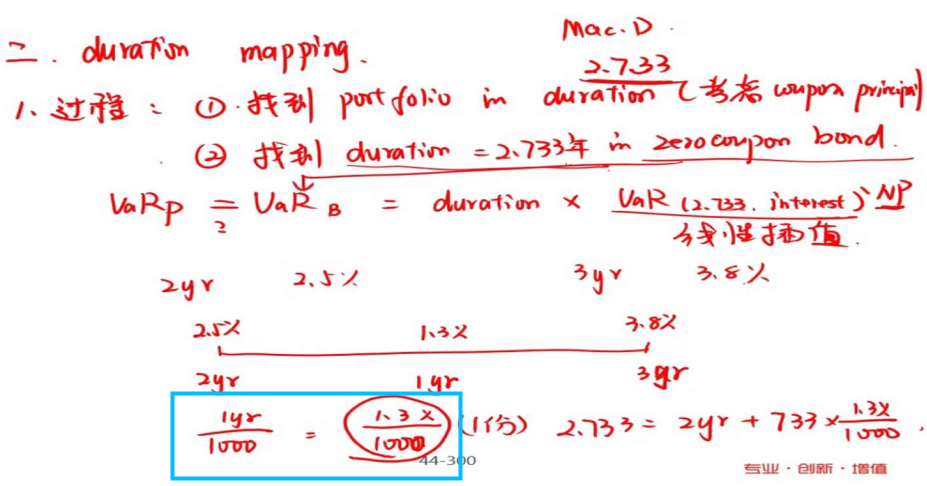 二. duration mapping.
Mac.D.
2.733
1、过程: ① 找到 portfolio in duration (考虑 coupon principal)
② 找到 duration = 2.733年 in zero coupon bond.
VaRp = VaR B = duration × VaR (2.733. interest) NP
2
线性插值.
2yr 2.5% 3yr 3.8%
2.5% 1.3% 3.8%
2yr 1yr 3yr
1yr/1000 = 1.3%/1000 (1份) 2.733 = 2yr + 733 × 1.3%/1000.
44-300
专业·创新·增值